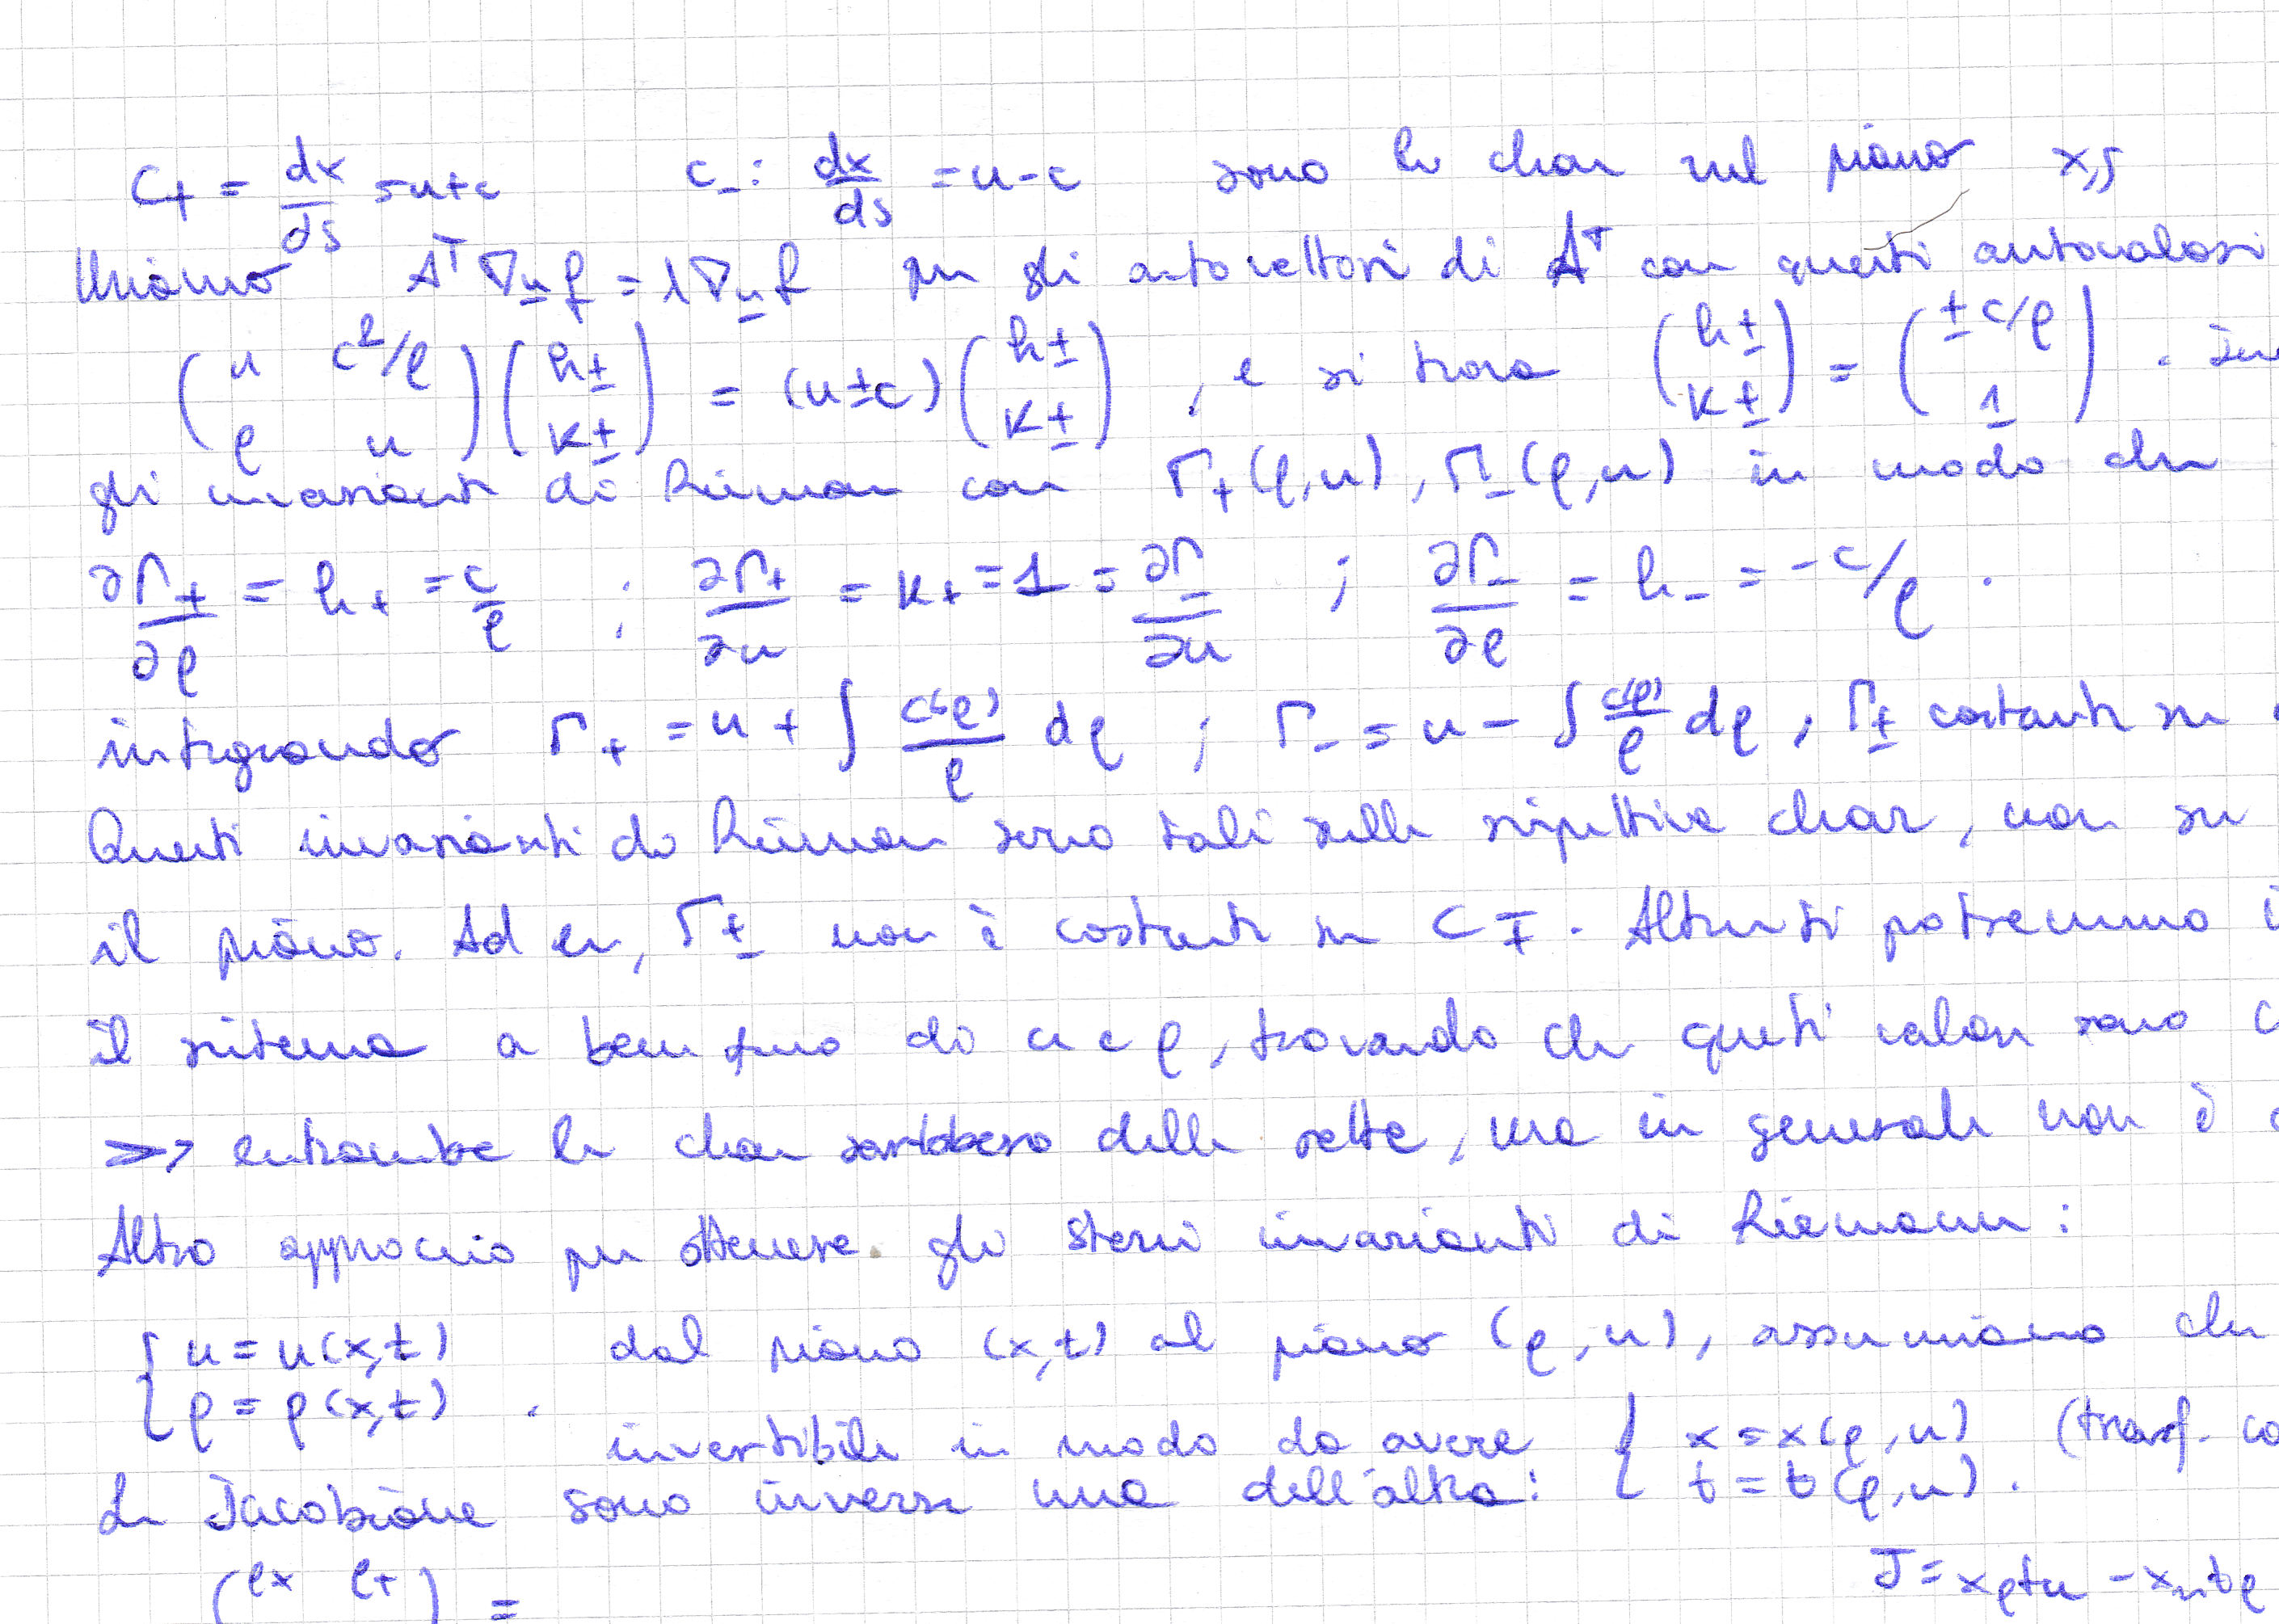 C₊ = dx/ds = u+c    C₋: dx/ds = u-c    sono le char nel piano x,s
Usiamo Aᵀ∇_u f = λ∇_u f per gli autovettori di Aᵀ con questi autovalori
(u c²/ρ; ρ u)(h±; k±) = (u±c)(h±; k±), e si trova (h±; k±) = (±c/ρ; 1).
gli invarianti di Rieman con Γ₊(ρ,u), Γ₋(ρ,u) in modo che
∂Γ₊/∂ρ = h₊ = c/ρ ; ∂Γ₊/∂u = k₊ = 1 = ∂Γ₋/∂u ; ∂Γ₋/∂ρ = h₋ = -c/ρ.
integrando Γ₊ = u + ∫ c(ρ)/ρ dρ ; Γ₋ = u - ∫ c(ρ)/ρ dρ, Γ± costanti su
Questi invarianti di Rieman sono tali sulle rispettive char, non su
il piano. Ad es, Γ± non è costante su C∓. Altrimenti potremmo i
il sistema a ben fino di u e ρ, trovando che questi valori sono c
=> entrambe le char sarebbero delle rette, ma in generale non è
Altro approccio per ottenere gli stessi invarianti di Riemann:
{ u = u(x,t)    dal piano (x,t) al piano (ρ,u), assumiamo che
{ ρ = ρ(x,t).
invertibile in modo da avere { x = x(ρ,u) (trasf. co
Le Jacobiane sono inverse una dell'altra: { t = t(ρ,u).
(ρₓ ρₜ) =    J = x_ρ t_u - x_u t_ρ